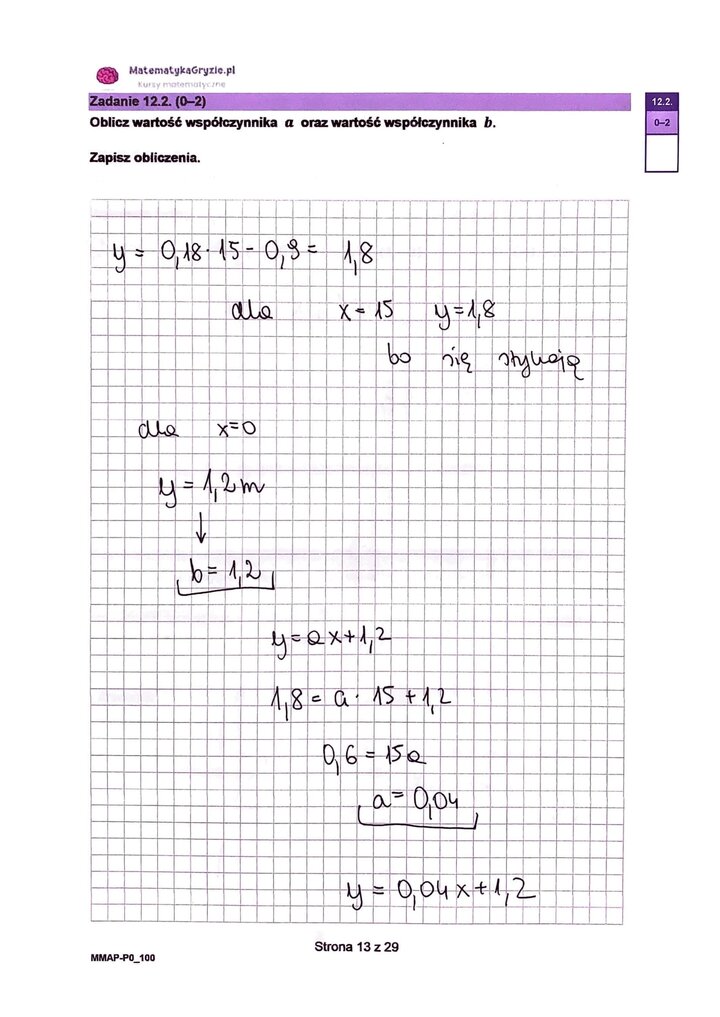 MatematykaGryzie.pl
Kursy matematyczne
Zadanie 12.2. (0–2)
12.2.
0–2
Oblicz wartość współczynnika a oraz wartość współczynnika b.
Zapisz obliczenia.
y = 0,18 · 15 - 0,9 = 1,8
dla x = 15 y = 1,8
bo się stykają
dla x=0
y = 1,2m
↓
b = 1,2
y = ax + 1,2
1,8 = a · 15 + 1,2
0,6 = 15a
a = 0,04
y = 0,04x + 1,2
Strona 13 z 29
MMAP-P0_100